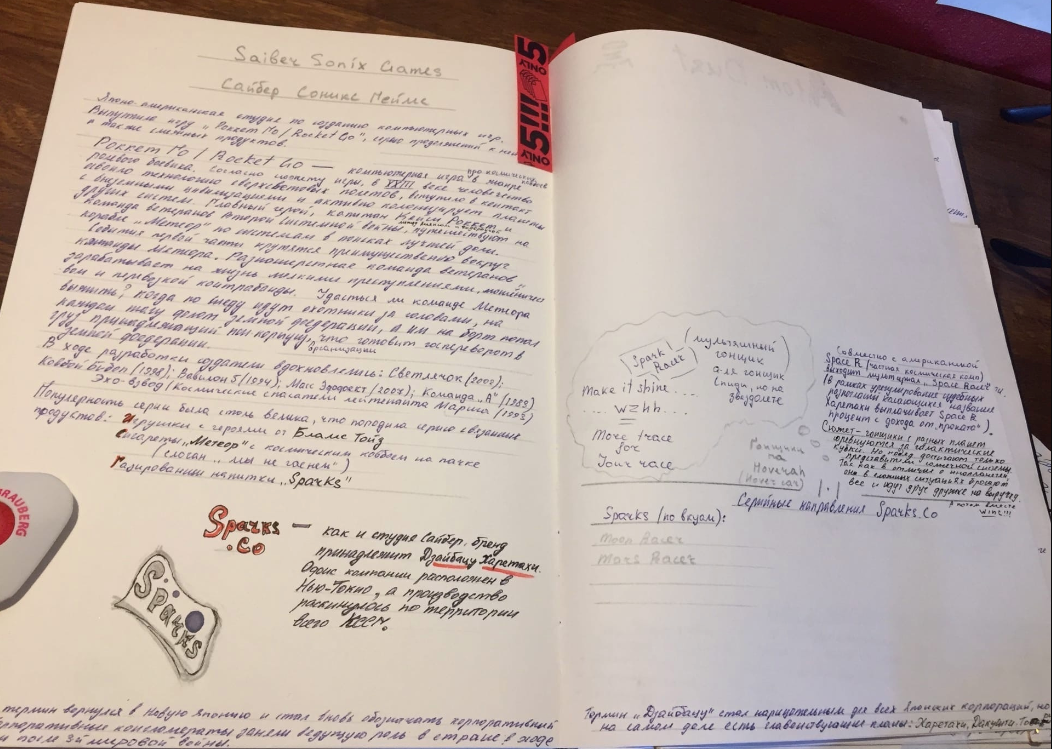 Saiber Sonix Games
Сайбер Соникс Геймс
Японо-американская студия по созданию компьютерных игр.
Выпустила игру „Роккет Го / Rocket Go", серию продолжений к ней
а также смежных продуктов.
Роккет Го / Rocket Go — компьютерная игра в жанре
про космических ковбоев
ролевого боевика. Согласно сюжету игры, в XXIII веке человечество
освоило технологию сверхсветовых полетов, вступило в контакт
с внеземными цивилизациями и активно колонизирует планеты
других систем. Главный герой, капитан Роккет и
команда ветеранов Второй Системной войны, путешествуют на
корабле „Метеор" по системам в поисках лучшей доли.
События первой части крутятся преимущественно вокруг
команды Метеора. Разношерстная команда ветеранов
зарабатывает на жизнь мелкими преступлениями, мошенничес
вом и перевозкой контрабанды. Удасться ли команде Метеора
выжить? Когда по следу идут охотники за головами, на
каждом шагу агент земной федерации, а им на борт попал
груз принадлежащий организации, что готовит госпереворот в
земной федерации.
В ходе разработки создатели вдохновлялись: Светлячок (2002);
Ковбой Бибоп (1998); Вавилон 5 (1994); Масс Эффект (2007); Команда „А" (1983)
Эхо-взвод/Космические спасатели лейтенанта Марша (1993)
Популярность серии была столь велика, что породила серию связанных
продуктов: Игрушки с героями от Бламс Тойз
Сигареты „Метеор" с космическим ковбоем на пачке
(слоган „мы не гаснем")
Газированный напиток „Sparks"
Sparks
.Co
— как и студия Сайбер, бренд
принадлежит Дзайбацу Харетахи.
Офис компании расположен в
Нью-Токио, а производство
раскинулось по территории
всего
Sparks
термин вернулся в Новую Японию и стал вновь обозначать корпоративный
корпоративные конгломераты заняли ведущую роль в стране в ходе
и после 3й мировой войны.
ONLY 5!!! ONLY 5
Spark!
Racer
(мультяшный
гонщик
а-ля гонщик
Спиди, но на
звездолете
Make it shine....
.... wzhh...
More trace
for
Your race
Гонщики
на
Hoverах
(Hover car)
Совместно с американской
Space R (частная космическая комп)
выходит мультсериал „Space Racer"
(в рамках урегулирования судебных
разногласий касающихся названия
Харетахи выплачивает Space R
процент с дохода от проката").
Сюжет - гонщики с разных планет
соревнуются за галактические
кубки. Но побед достигают только
представители солнечной системы
так как в отличие о инопланетян
они в сложных ситуациях бросают
все и идут друг дружке на выручку.
WIN!!!
Серийные направления Sparks.Co
Sparks (по вкусам):
Moon Racer
Mars Racer
Термин „Дзайбацу" стал нарицательным для всех Японских корпораций, но
на самом деле есть главенствующие кланы: Харетахи,